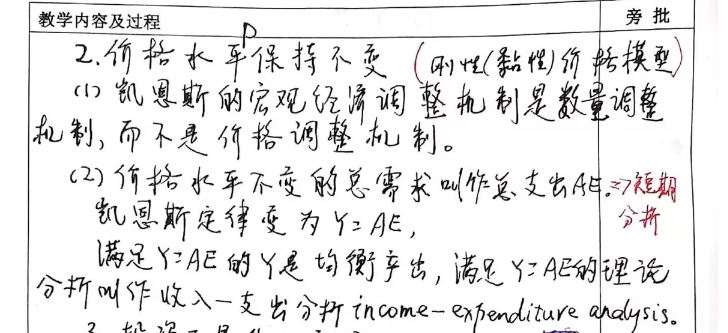 教学内容及过程
旁 批
P
2.价格水平保持不变 (刚性(黏性)价格模型)
(1)凯恩斯的宏观经济调整机制是数量调整
机制,而不是价格调整机制。
(2)价格水平不变的总需求叫作总支出AE. =>短期
分析
凯恩斯定律变为Y=AE,
满足Y=AE的Y是均衡产出,满足Y=AE的理论
分析叫作收入—支出分析income-expenditure analysis。